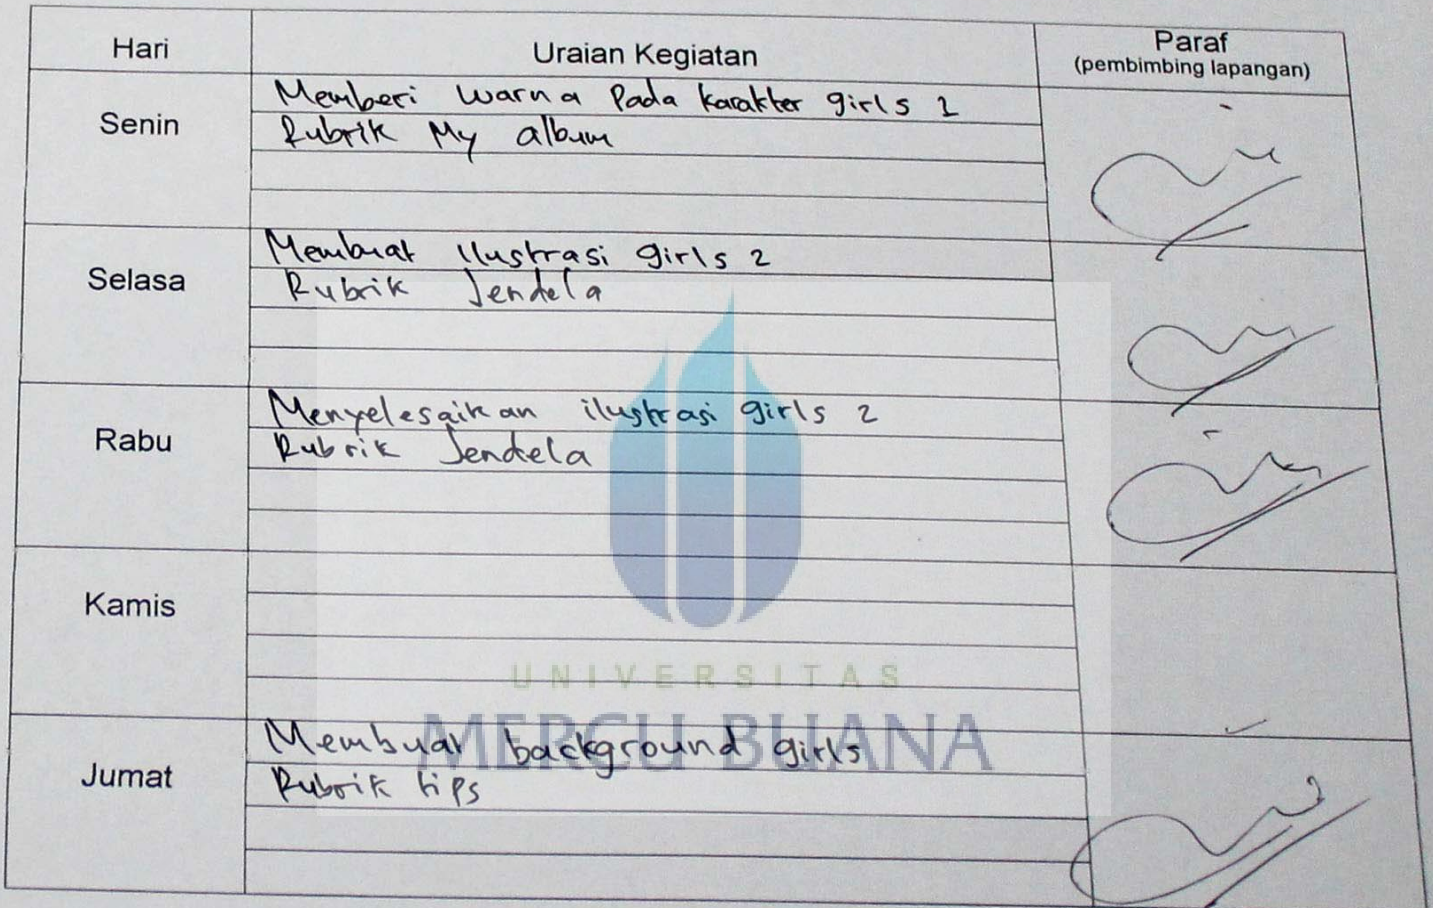 Hari Uraian Kegiatan Paraf
(pembimbing lapangan)
Senin
Memberi warna Pada karakter girls 1
Rubrik My album
Selasa
Membuat Ilustrasi girls 2
Rubrik Jendela
Rabu
Menyelesaikan ilustrasi girls 2
Rubrik Jendela
Kamis
UNIVERSITAS
MERCU BUANA
Jumat
Membuat background girls
Rubrik tips